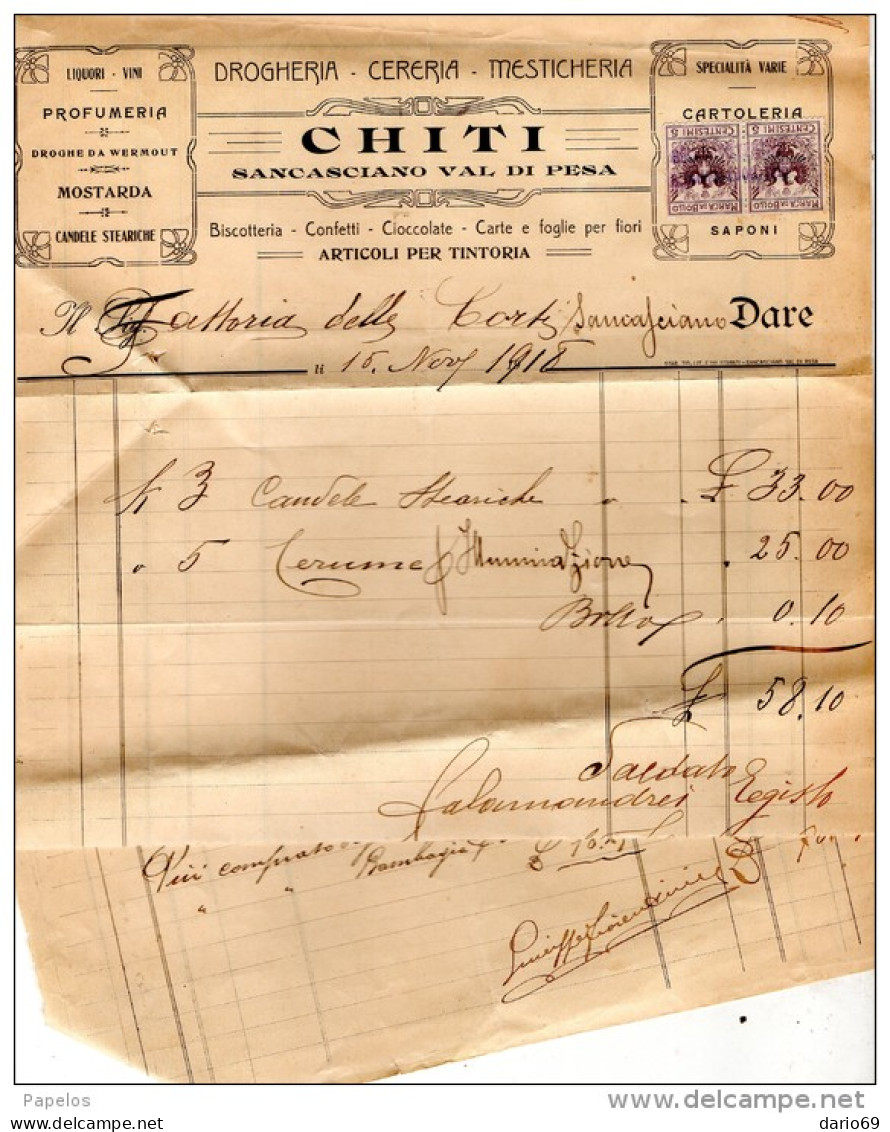 LIQUORI - VINI
PROFUMERIA
DROGHE DA WERMOUT
MOSTARDA
CANDELE STEARICHE
DROGHERIA - CERERIA - MESTICHERIA
CHITI
SANCASCIANO VAL DI PESA
Biscotteria - Confetti - Cioccolate - Carte e foglie per fiori
ARTICOLI PER TINTORIA
SPECIALITÀ VARIE
CARTOLERIA
CENTESIMI 5 CENTESIMI 5
MARCA DA BOLLO MARCA DA BOLLO
SAPONI
Il Sig. Fattoria delle Corti Sancasciano Dare
li 16. Nov 1918
K 3 Candele Steariche " " £ 33.00
" 5 Cerume Illuminazione " 25.00
Bollo " 0.10
£ 58.10
Saldato
Calamandrei Egisto
Più comprato Bambagia
" "
Giuseppe
Papelos
delcampe.net
dario69